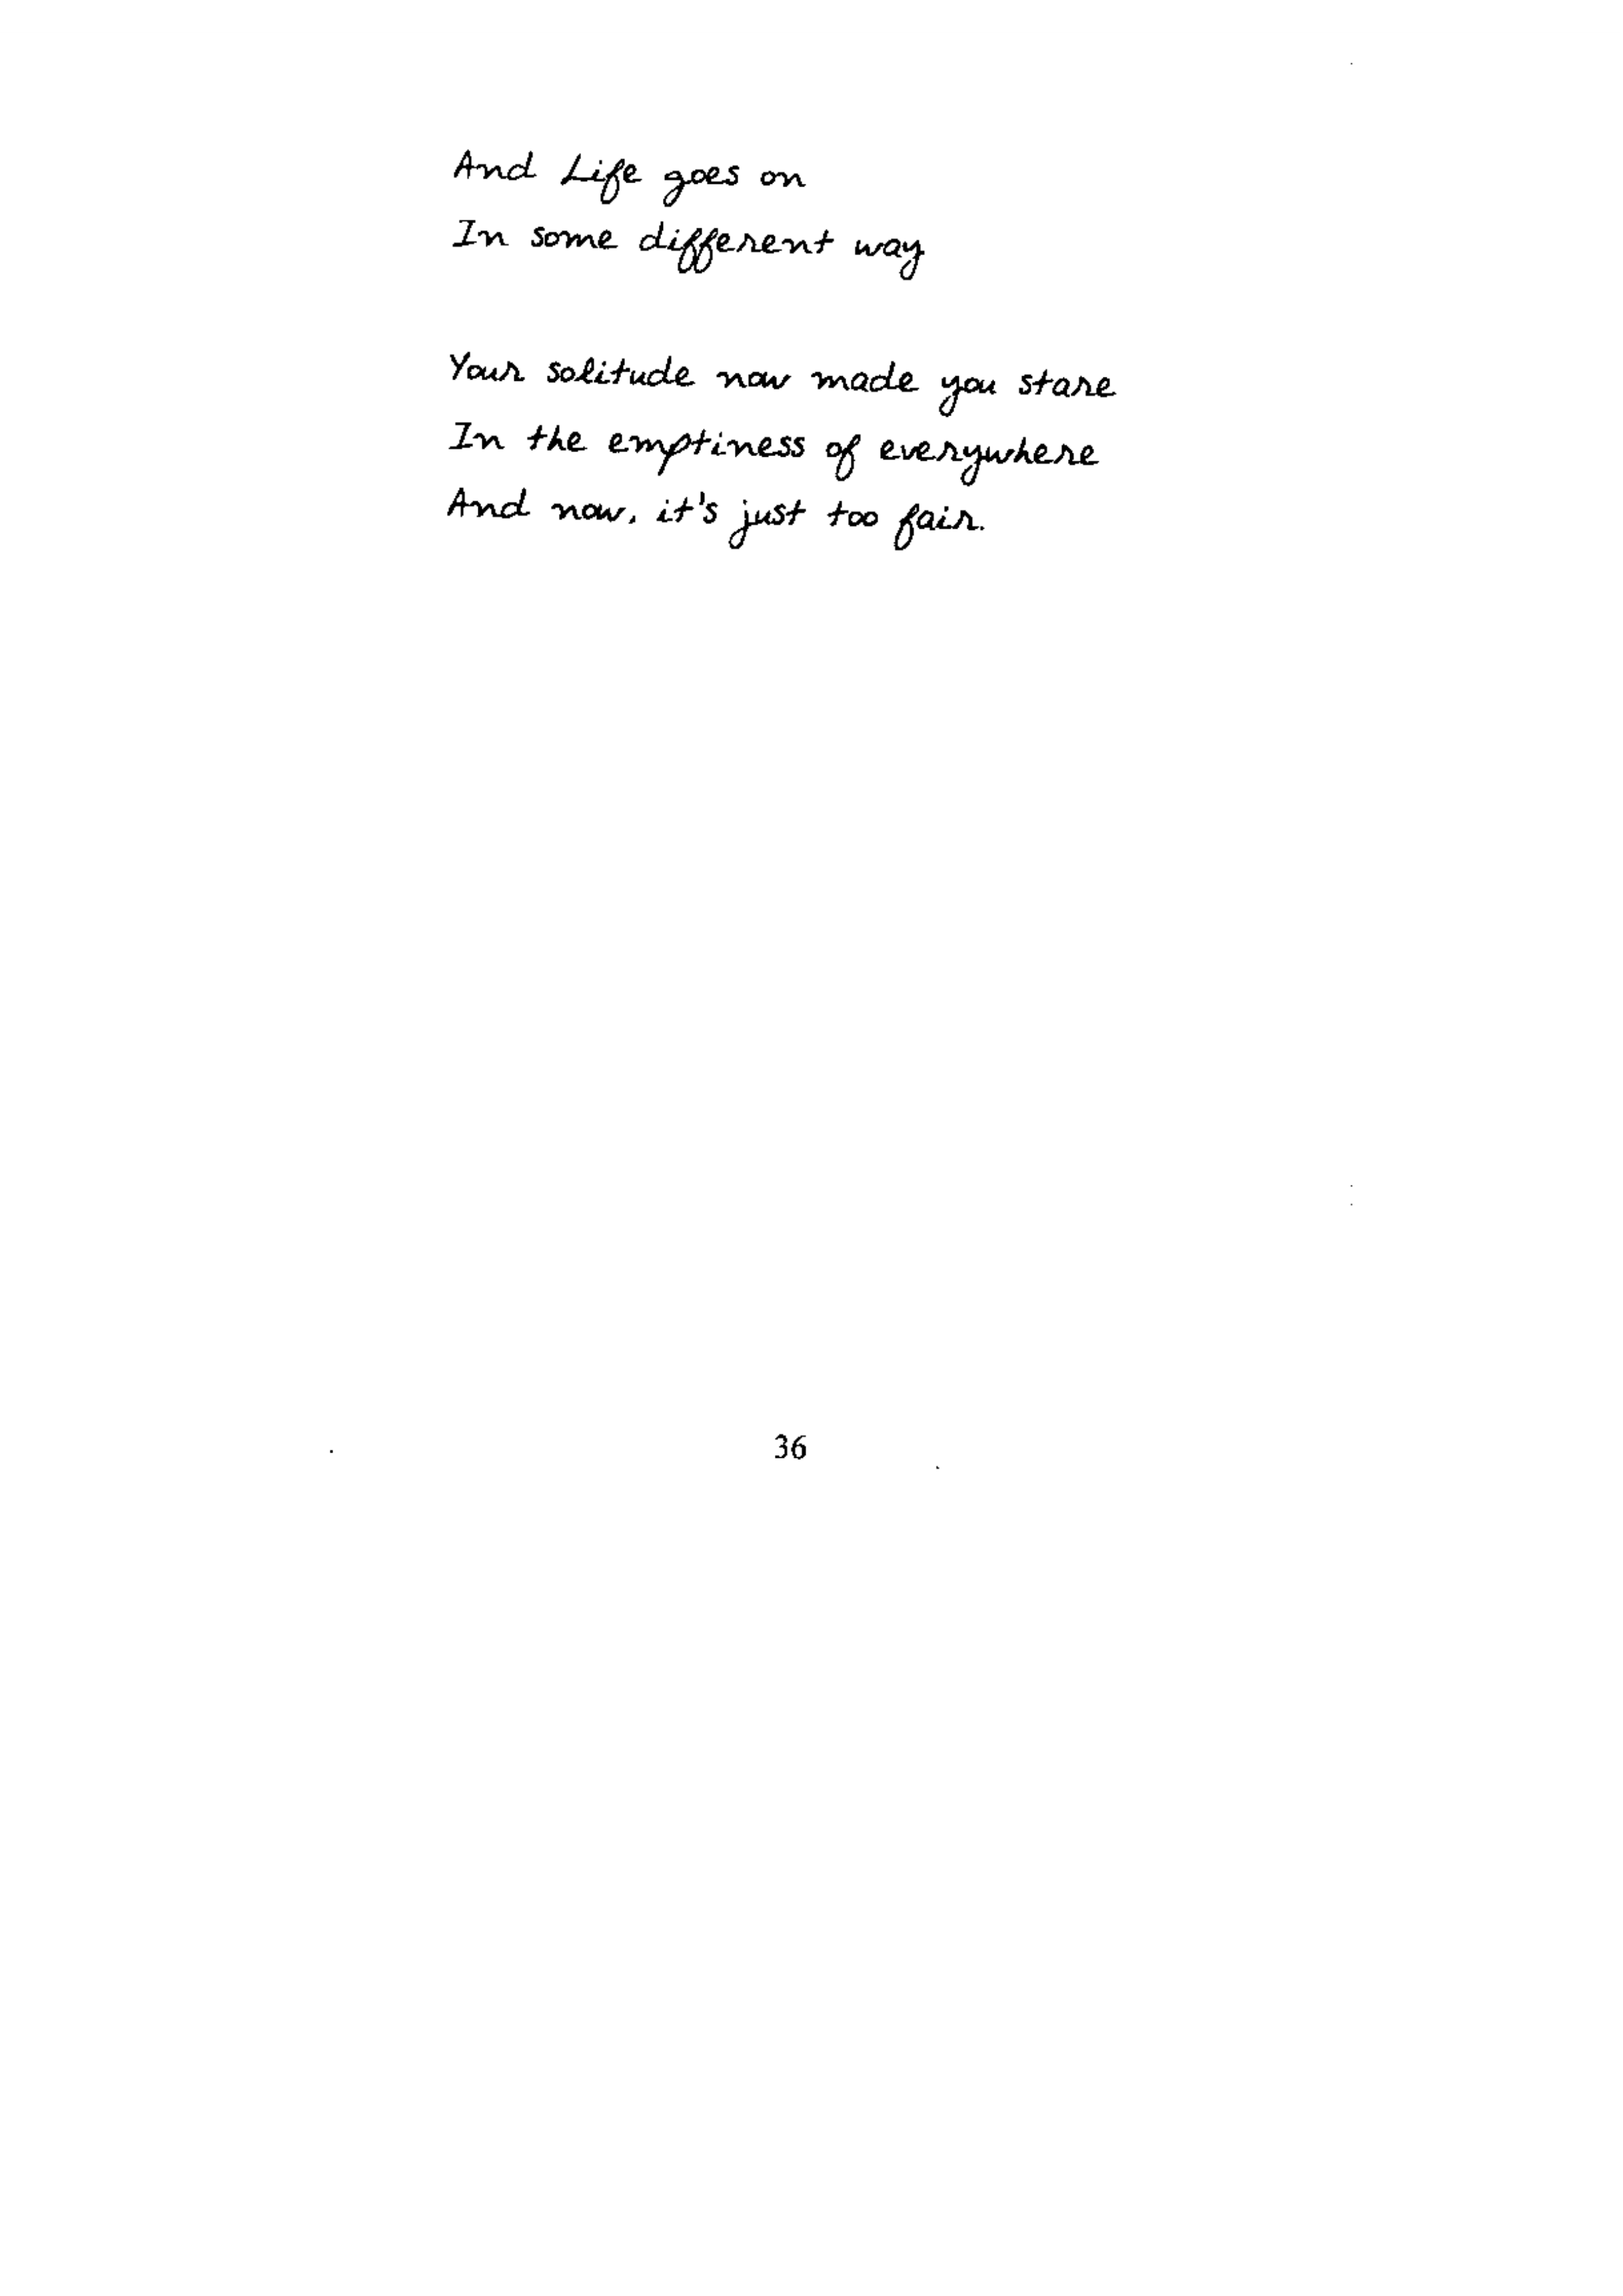 And Life goes on
In some different way
Your solitude now made you stare
In the emptiness of everywhere
And now, it's just too fair.
36